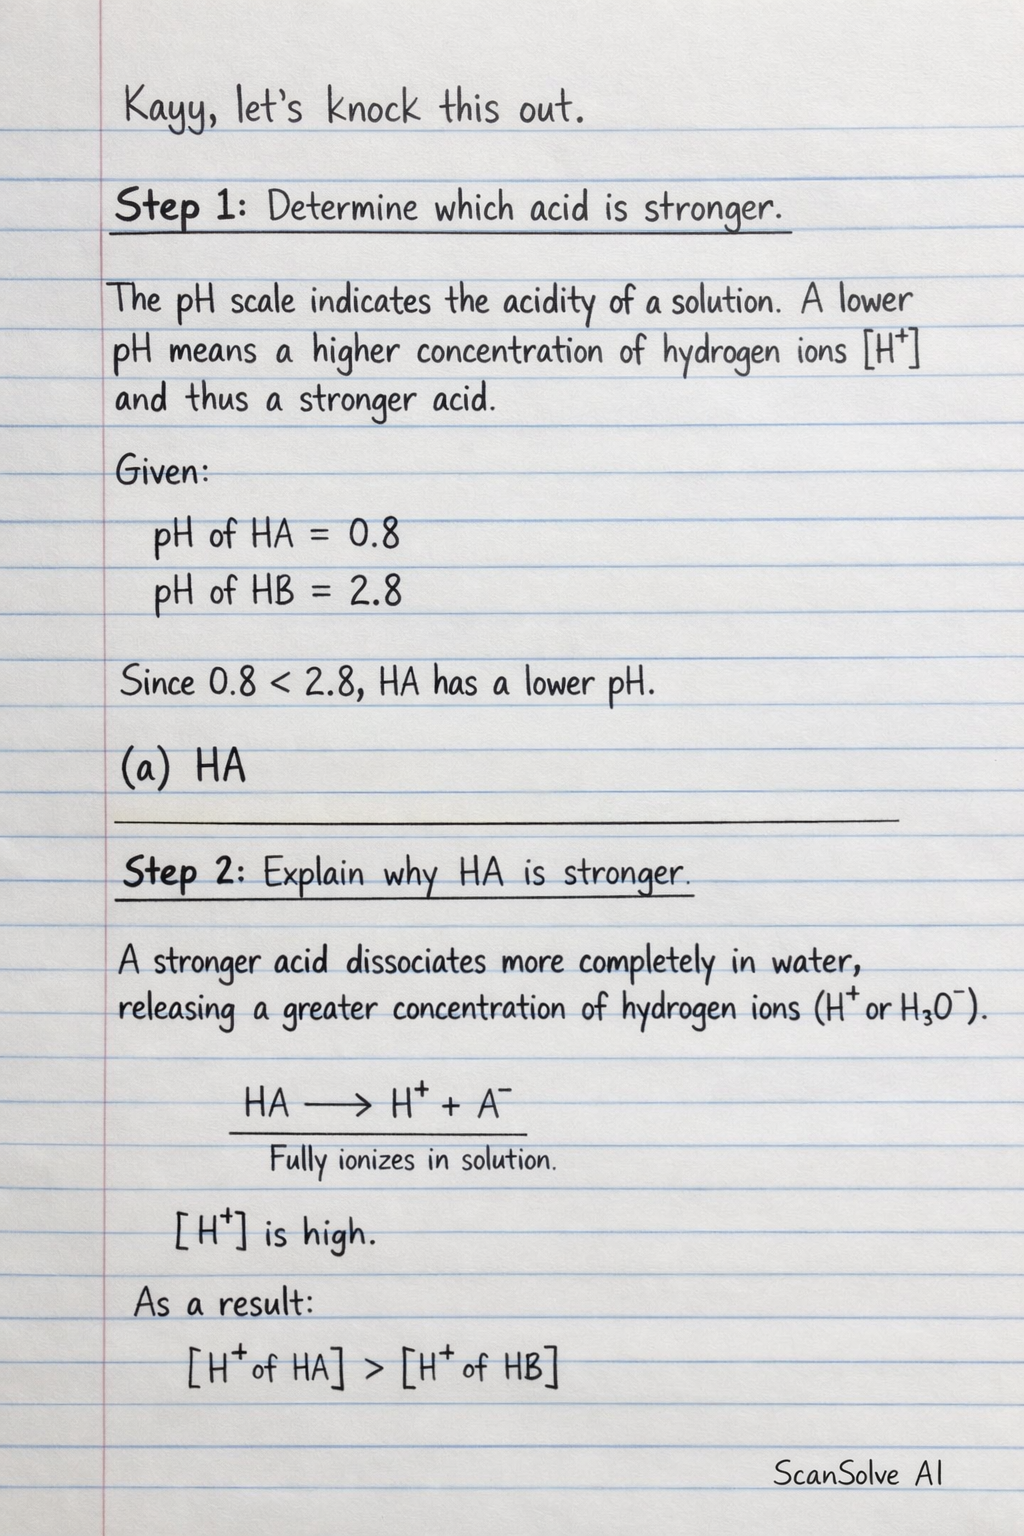 Kayy, let's knock this out.
Step 1: Determine which acid is stronger.
The pH scale indicates the acidity of a solution. A lower
pH means a higher concentration of hydrogen ions [H⁺]
and thus a stronger acid.
Given:
pH of HA = 0.8
pH of HB = 2.8
Since 0.8 < 2.8, HA has a lower pH.
(a) HA
Step 2: Explain why HA is stronger.
A stronger acid dissociates more completely in water,
releasing a greater concentration of hydrogen ions (H⁺ or H₃O⁻).
HA ⟶ H⁺ + A⁻
Fully ionizes in solution.
[H⁺] is high.
As a result:
[H⁺ of HA] > [H⁺ of HB]
ScanSolve AI